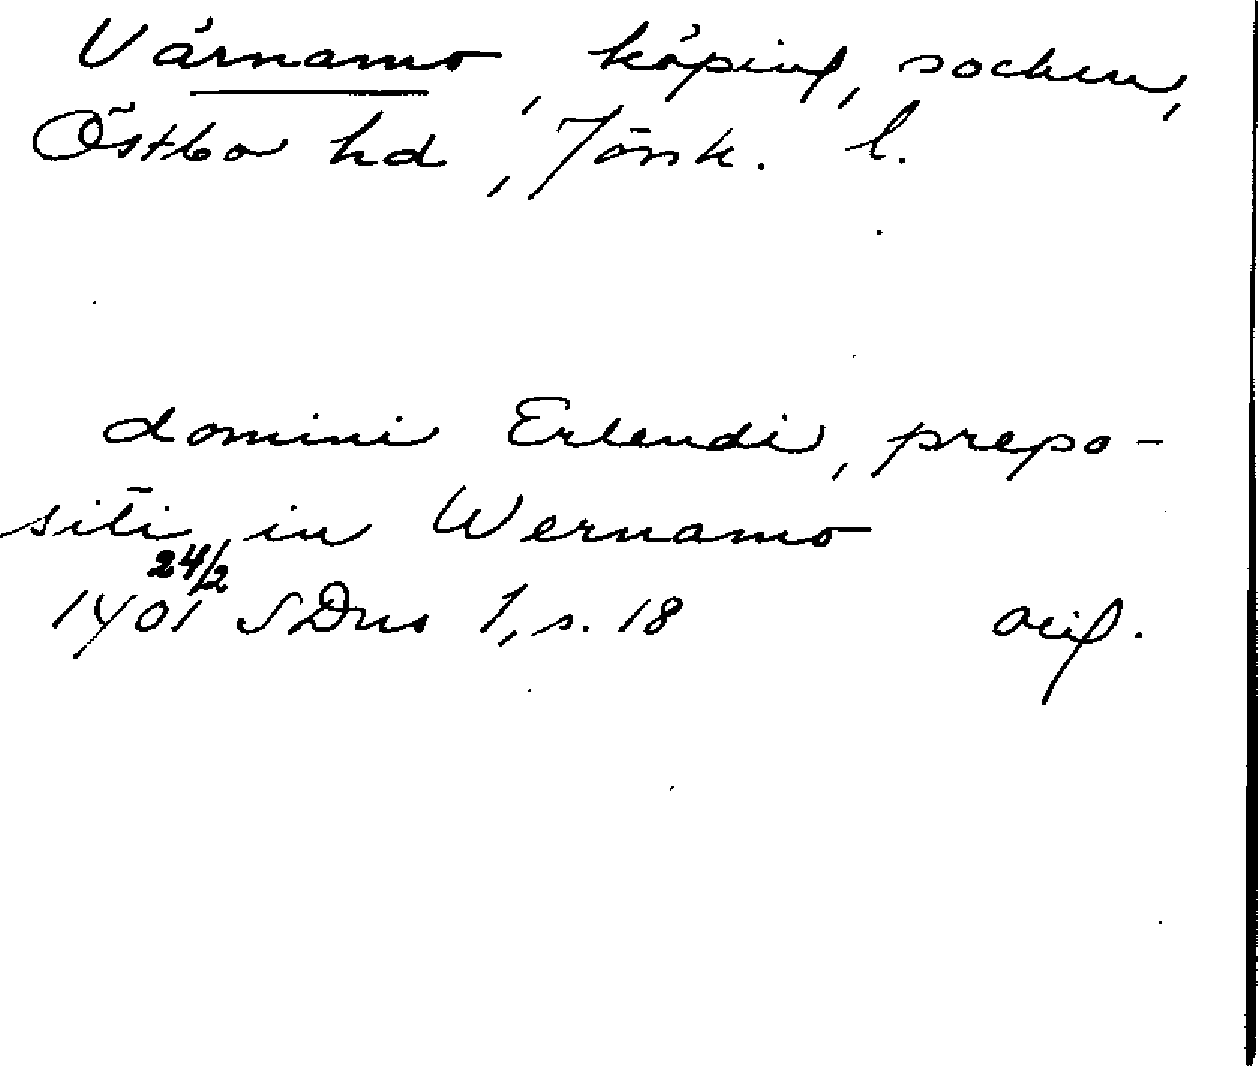 Värnamo, köping, socken,
Östbo hd, Jönk. l.
domini Erlendi, prepo-
siti in Wernamo
24/2
1401 SDns 1, s. 18 orig.